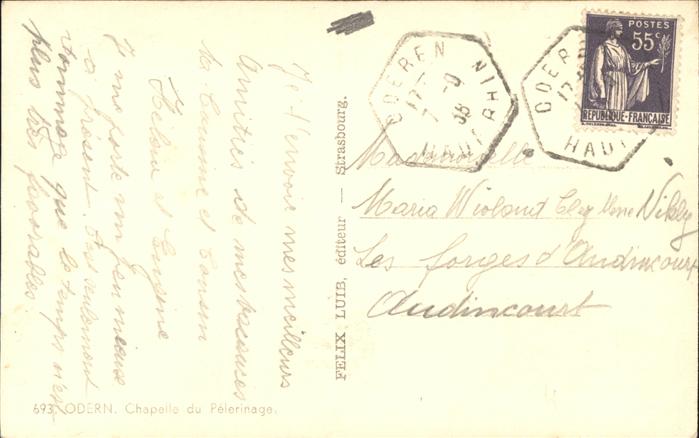 Je t'envoie mes meilleurs
amitiés de mes vacances
ta Cousine et Cousin
Hélène et Eugène
Je me porte un peu mieux
à présent. C'est seulement
dommage que le temps n'est
plus très favorable.
693. ODERN. Chapelle du Pélerinage.
FELIX LUIB, éditeur — Strasbourg.
ODEREN
HAUT RHIN
ODEREN
HAUT
POSTES
55c
REPUBLIQUE-FRANÇAISE
Mademoiselle
Maria Violant
Les forges d'Audincourt
Audincourt